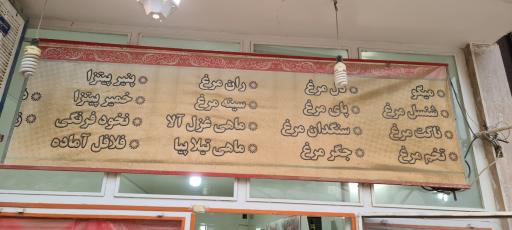 میگو
شنسل مرغ
ناگت مرغ
تخم مرغ
دل مرغ
پای مرغ
سنگدان مرغ
جگر مرغ
ران مرغ
سینه مرغ
ماهی غزل آلا
ماهی تیلا پیا
پنیر پیتزا
خمیر پیتزا
نخود فرنگی
فلافل آماده